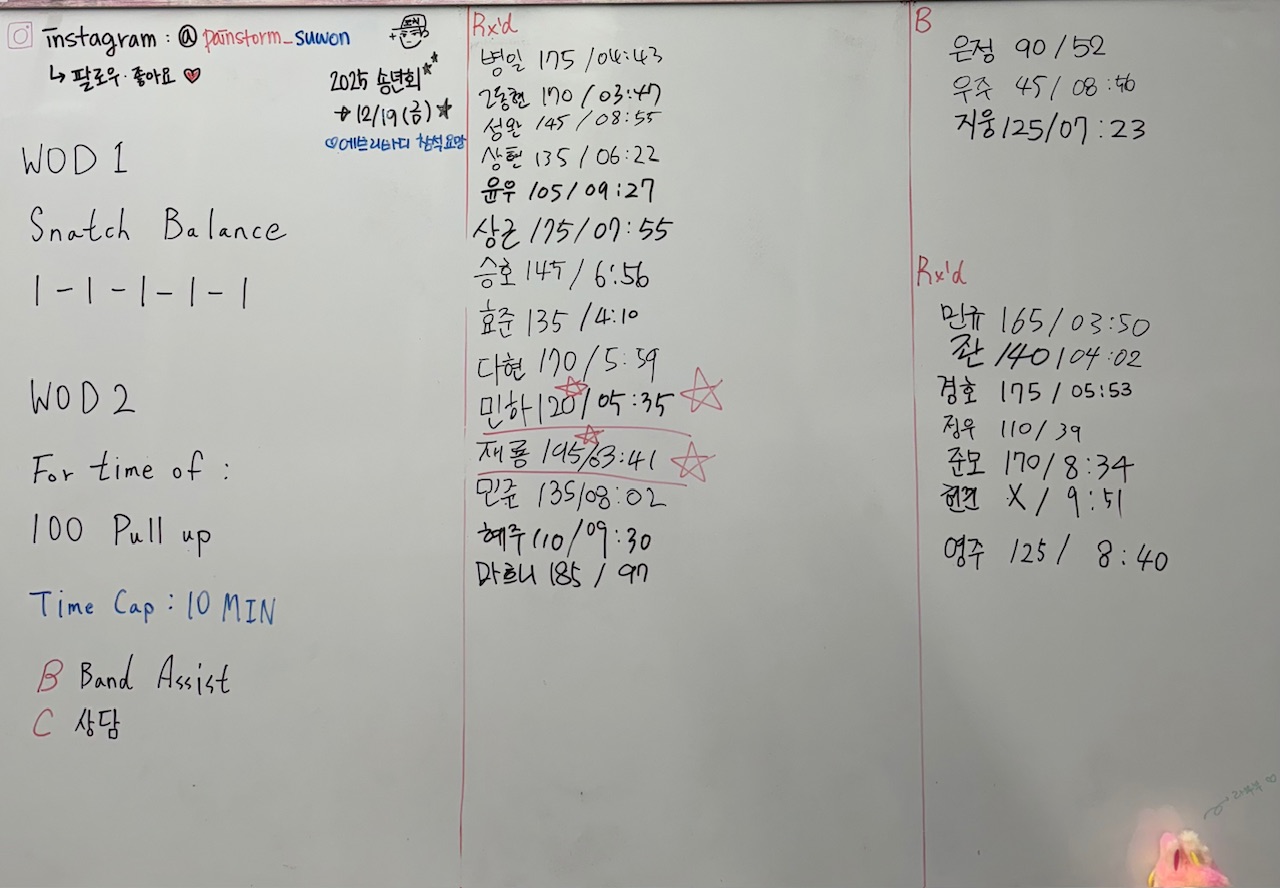 instagram : @painstorm_suwon
↳ 팔로우·좋아요 ♥
2025 송년회
→ 12/19(금)
♡에브리바디 참석요망
WOD 1
Snatch Balance
1-1-1-1-1
WOD 2
For time of :
100 Pull up
Time Cap : 10 MIN
B Band Assist
C 상담
Rx'd
병일 175 / 04:43
170 / 03:47
성완 145 / 08:55
상현 135 / 06:22
윤우 105 / 09:27
상근 175 / 07:55
승호 145 / 6:56
효준 135 / 4:10
다현 170 / 5:59
민하 120 / 05:35
재룡 195 / 03:41
민준 135/08:02
혜주 110 / 09:30
마르니 185 / 97
B
은정 90 / 52
우주 45 / 08:56
지웅 125/07:23
Rx'd
민규 165 / 03:50
140 / 04:02
경호 175 / 05:53
정우 110 / 39
준모 170 / 8:34
X / 9:51
영주 125 / 8:40